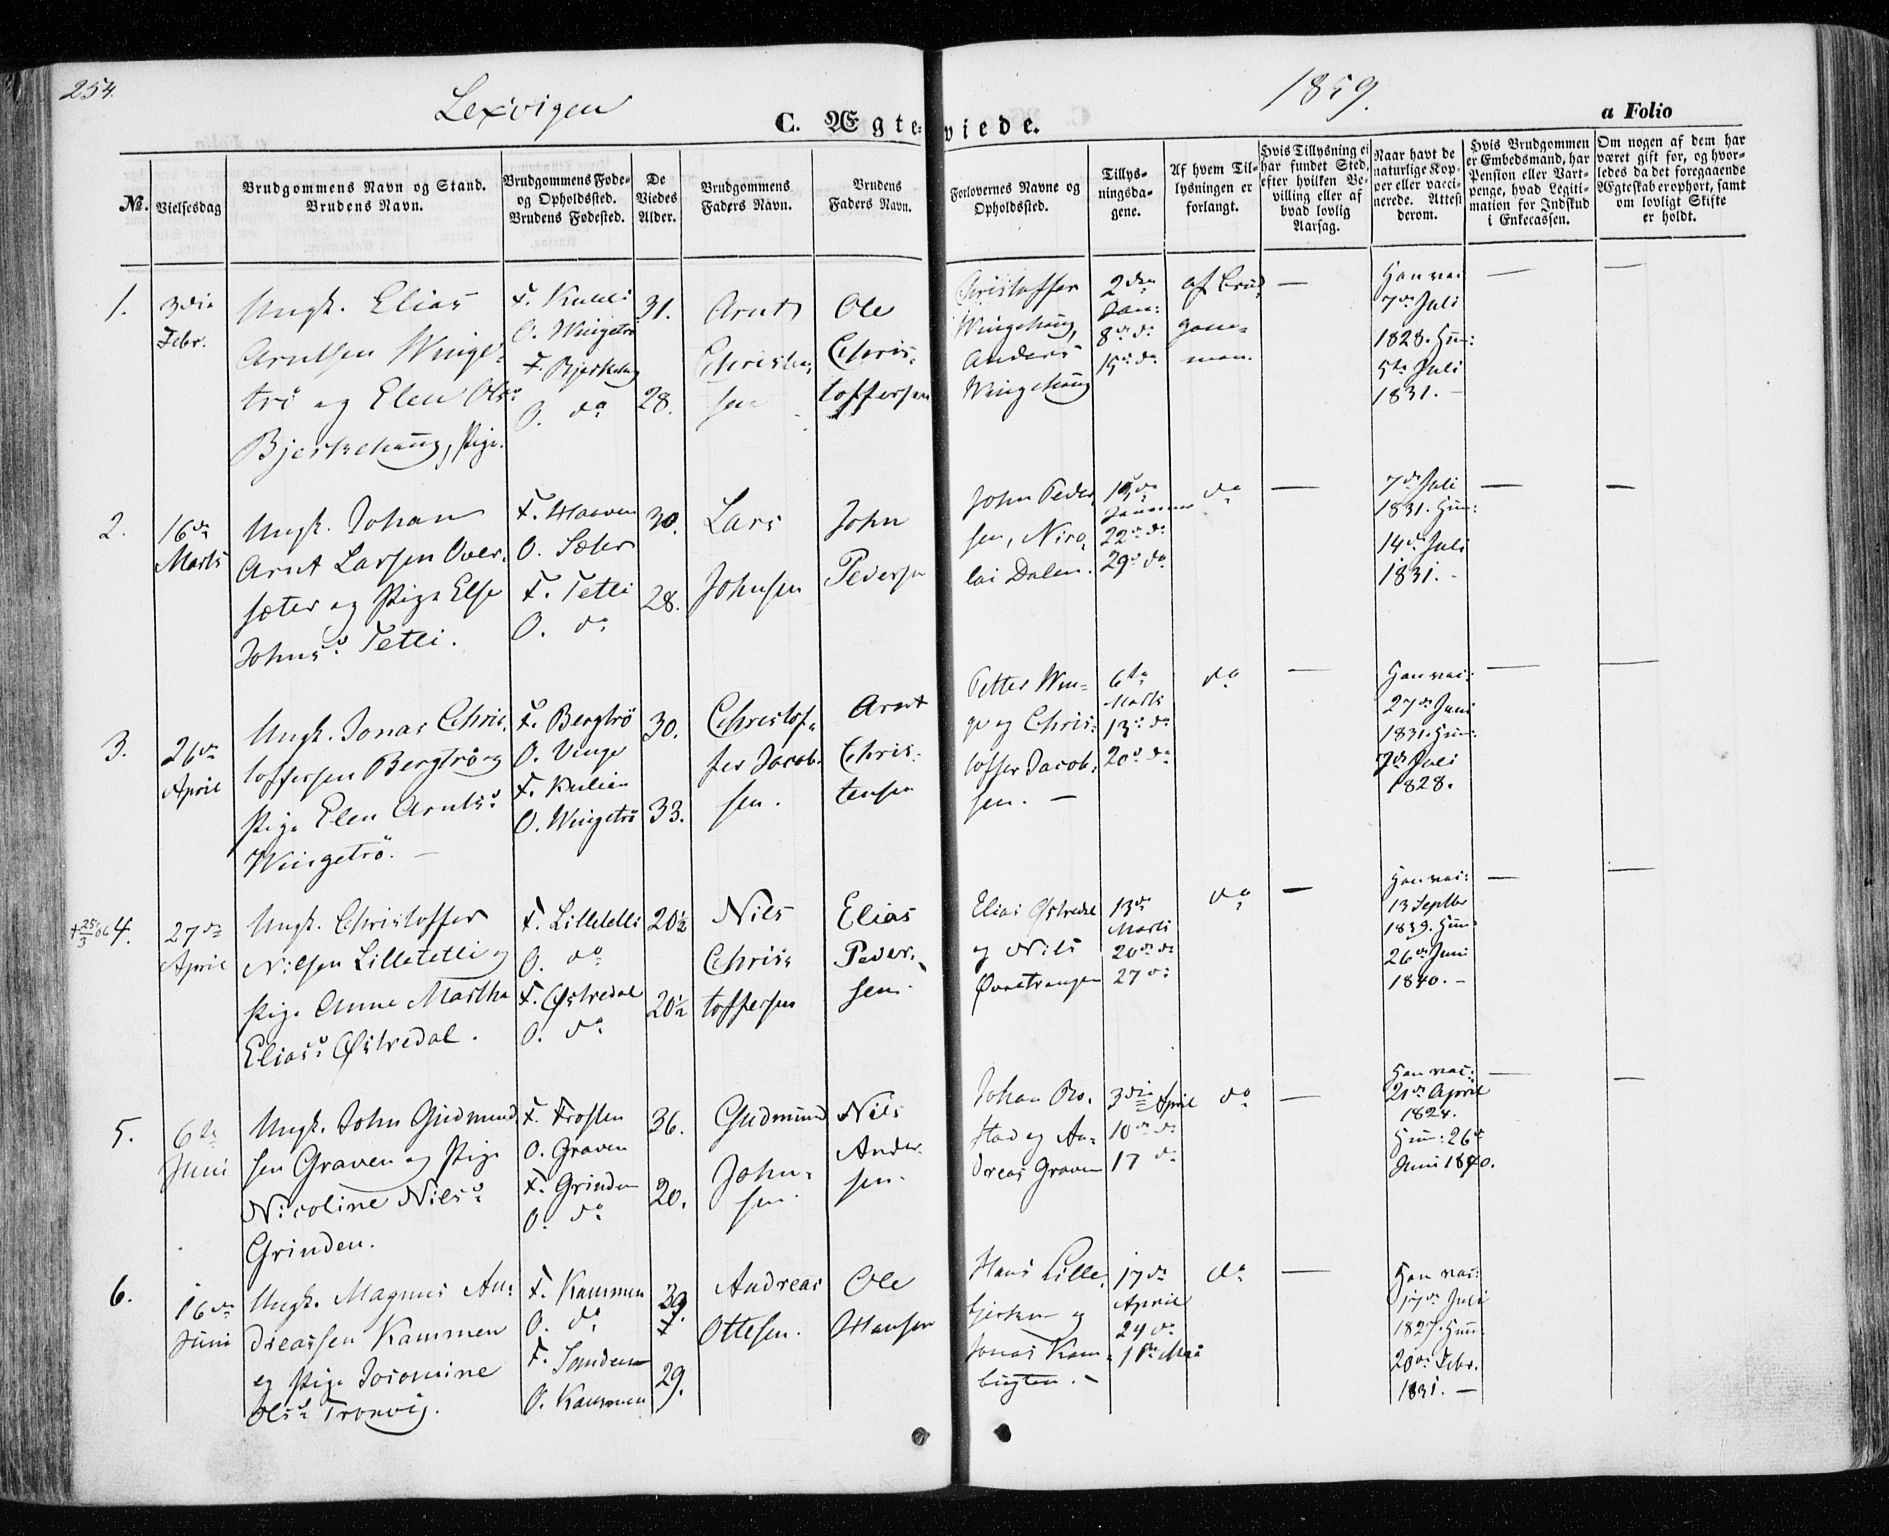 254.
Lexvigen
1859.
C. Ægteviede.
a Folio
No.
Vielsesdag
Brudgommens Navn og Stand.
Brudens Navn.
Brudgommens Føde-
og Opholdssted.
Brudens Fødested.
De
Viedes
Alder.
Brudgommens
Faders Navn.
Brudens
Faders Navn.
Forlovernes Navne og
Opholdssted.
Tillys-
ningsda-
gene.
Af hvem Til-
lysningen er
forlangt.
Hvis Tillysning ei
har fundet Sted,
efter hvilken Be-
villing eller af
hvad lovlig
Aarsag.
Naar havt de
naturlige Kop-
per eller vacci-
nerede. Attest
derom.
Hvis Brudgommen
er Embedsmand, har
Pension eller Vart-
penge, hvad Legiti-
mation for Indskud
i Enkecassen.
Om nogen af dem har
været gift for, og hvor-
ledes da det foregaaende
Ægteskab er ophørt, samt
om lovligt Skifte
er holdt.
1.
3die
Febr.
Ungk. Elias
Arntsen Winge-
trø og Elen Olsd.
Bjerkehaug, Pige.
F.
O. Wingetrø
F. Bjerkehaug
O. do
31.
28.
Arnt
Christen-
sen
Ole
Chris-
toffersen
Christoffer
Wingehaug,
Anders
Wingehaug
2den
Jan:
8de do
15de do
af Brud-
gom-
men.
—
Han vac
7de Juli
1828. Hun:
5te Juli
1831. —
—
—
2.
16de
Marts
Ungk. Johan
Arnt Larsen Over-
sæter og Pige Else
Johnsd. Tetli.
F. Haaven
O. Sæter
F. Tetli
O. do
30.
28.
Lars
Johnsen
John
Pedersen
John Peder-
sen, Nico-
lai Dalen.
15de
Januar
22de do
29de do
do
—
7de Juli
1831. Hun:
14de Juli
1831. -
—
—
3.
26de
April
Ungk. Jonas Chris-
toffersen Bergtrø og
Pige Elen Arntsd.
Wingetrø. —
F. Bergtrø
O. Vinge
F.
O. Wingetrø
30.
33.
Christof-
fer Jacob-
sen.
Arnt
Chris-
tensen
Petter Win-
ge og Chris-
toffer Jacob-
sen. —
6te
Marts
13de do
20de do
do
—
Han vac:
27de Juni
1831. Hun:
7de Juli
1828.
—
—
† 25/3 06
4.
27de
April
Ungk. Christoffer
Nilsen Lilletetli og
Pige Anne Martha
Eliasd. Østredal.
F. Lilletetli
O. do
F. Østredal
O. do
20½
20½
Nils
Chris-
toffersen
Elias
Peder-
sen.
Elias Østredal
og Nils
13de
Marts
20de do
27de
do
—
Han vac:
13 Septbr
1839. Hun:
26de Juni
1840. —
—
—
5.
6te
Juni
Ungk. John Gudmund-
sen Graven og Pige
Nicoline Nilsd.
Grinden.
F. Frosten
O. Graven
F. Grinden
O. do
36.
20.
Gudmund
John-
sen.
Nils
Ander-
sen.
Johan Ro-
stad og An-
dreas Graven
3die April
10de do
17 do
do
—
Han vac:
21de April
1824.
Hun: 26de
Juni 1840.
—
—
6.
16de
Juni
Ungk. Magnus An-
dreassen Kammen
og Pige Joromine
Olsd. Tronvig.
F. Kammen
O. do
F. Sanden
O. Kammen
39.
29.
Andreas
Ottesen.
Ole
Hansen
Hans Lille-
bjerken og
Jonas Kam-
bugten. —
17de
April
24 do
1ste Mai
do
—
Han vac:
17de Juli
1827. Hun:
20de Febr.
1831. —